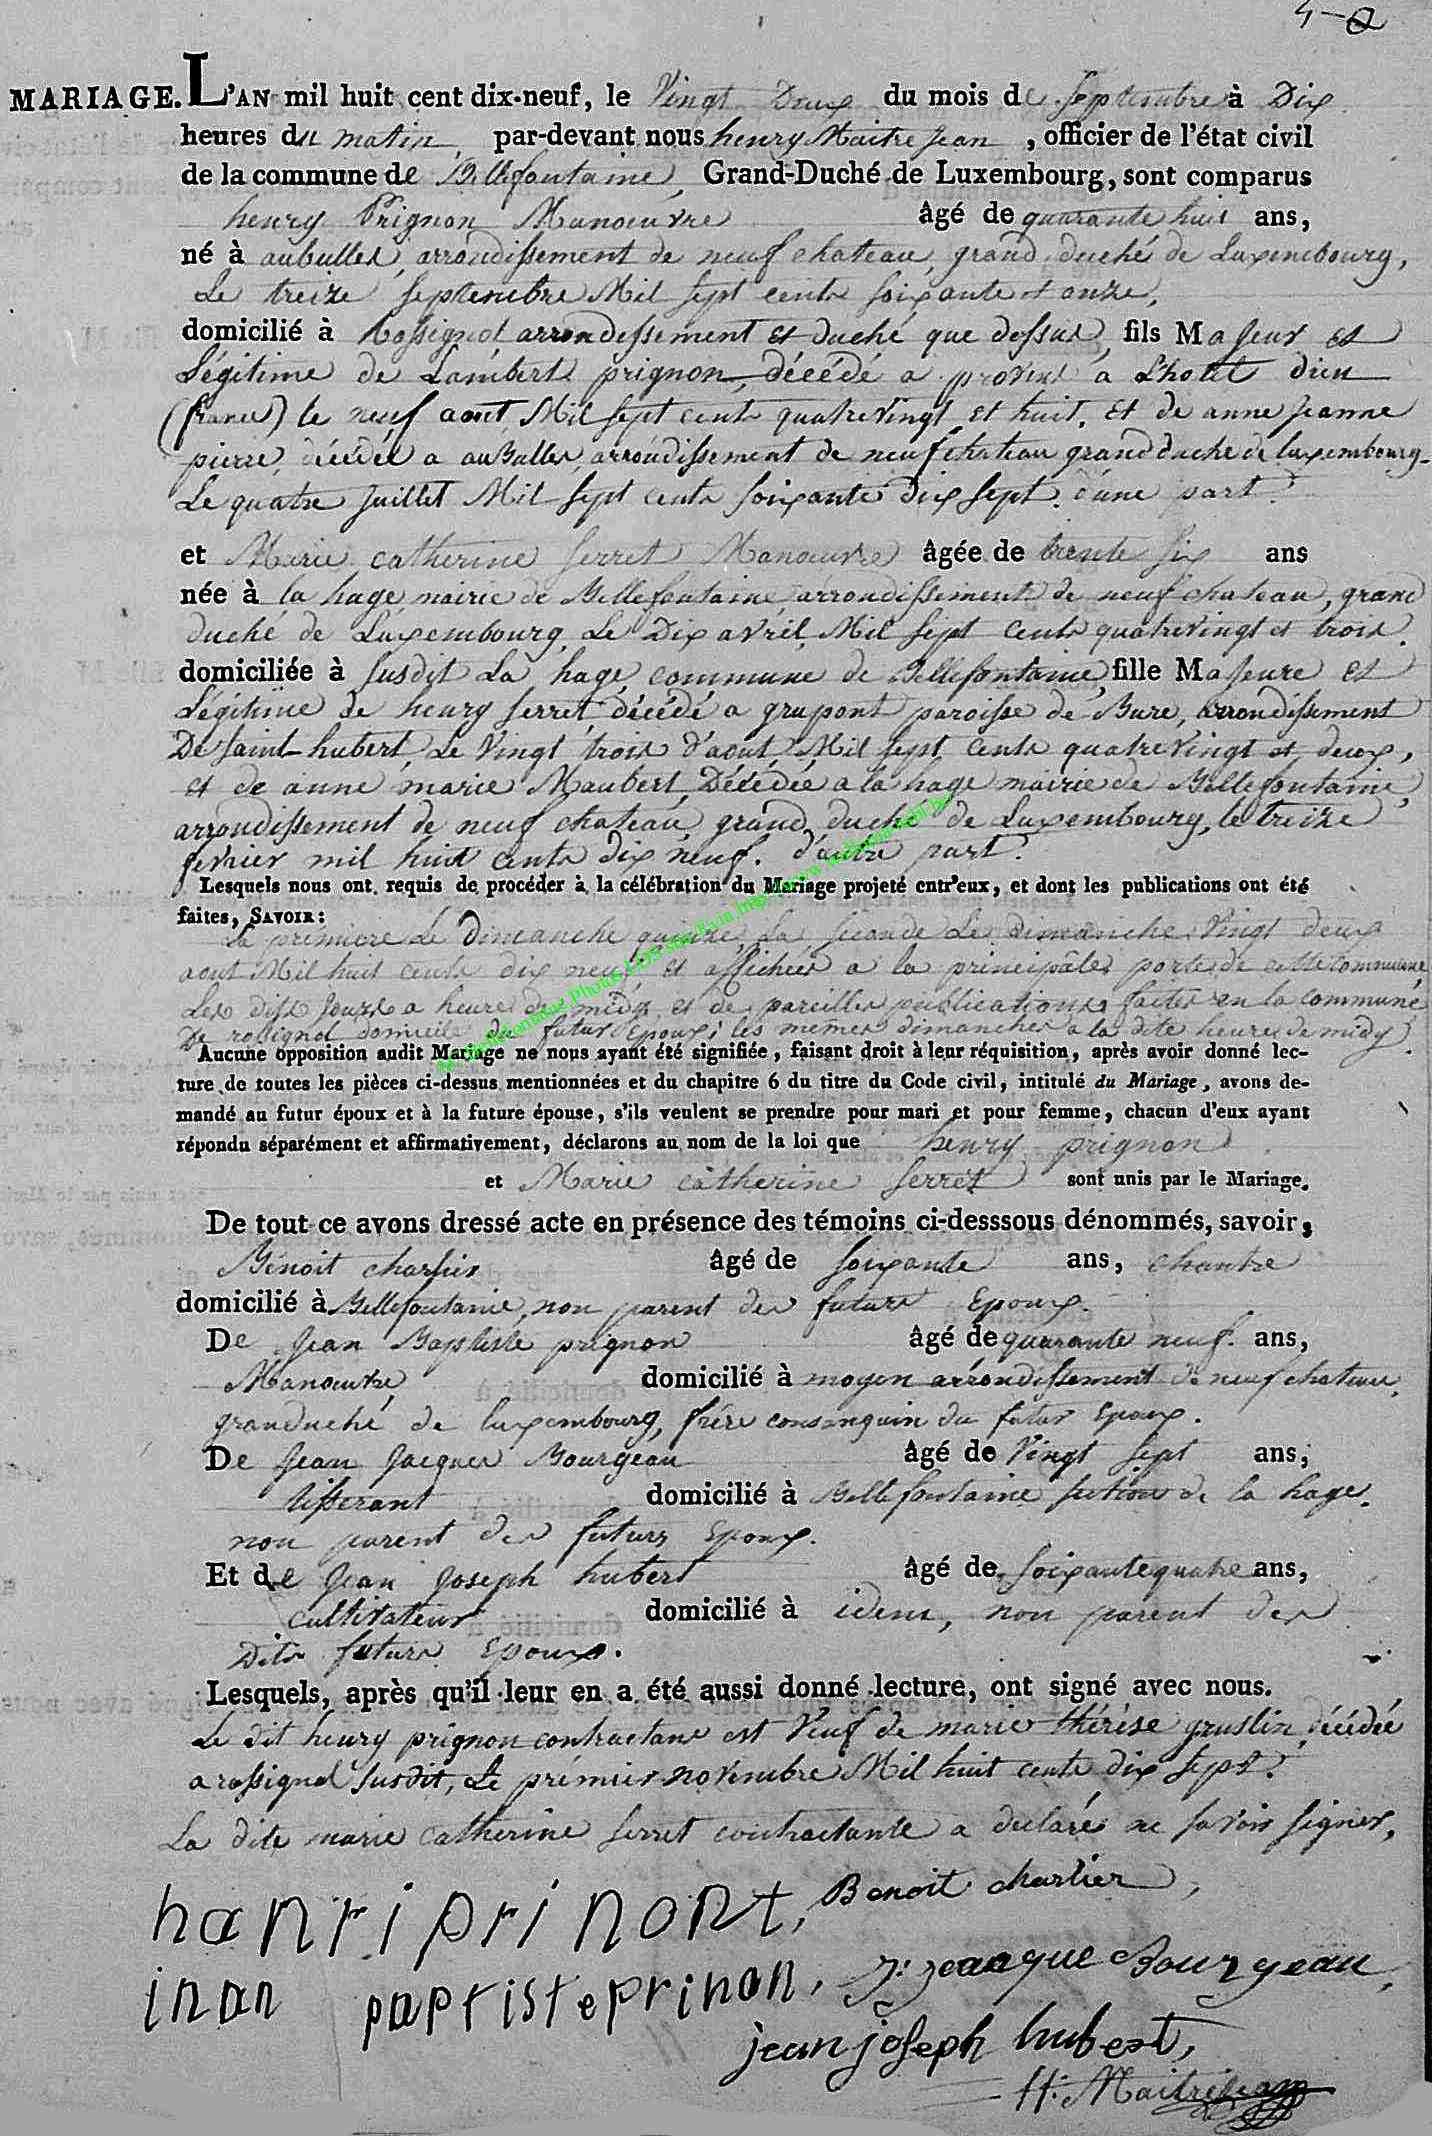 4-
MARIAGE. L'AN mil huit cent dix-neuf, le Vingt Deux du mois de septembre à Dix
heures du matin, par-devant nous henry Maitrejean, officier de l'état civil
de la commune de Bellefontaine, Grand-Duché de Luxembourg, sont comparus
henry Prignon Manoeuvre âgé de quarante huit ans,
né à aubulles, arrondissement de neufchateau, grand duché de Luxembourg,
Le treize septembre Mil sept cents soixante et onze,
domicilié à Rossignol arrondissement et duché que dessus, fils Majeur et
Légitime de Lambert prignon, décédé a provins a L'hotel dieu
(france) le neuf aout Mil sept cents quatrevingt et huit, et de anne jeanne
pierre, décédée a auBulles, arrondissement de neufchateau grand duché de luxembourg
Le quatre Juillet Mil sept cents soixante dix sept. d'une part.
et Marie catherine serret Manoeuvre âgée de trente six ans
née à la hage, mairie de Bellefontaine arrondissement de neufchateau, grand
duché de Luxembourg, Le Dix avril Mil sept cents quatrevingt et trois.
domiciliée à susdit La hage commune de Bellefontaine, fille Majeure et
Légitime de henry serret, décédé a grupont paroisse de Bure, arrondissement
De saint-hubert, Le Vingt trois d'aout, Mil sept cents quatrevingt et deux,
et de anne marie Maubert, Décédée a la hage mairie de Bellefontaine,
arrondissement de neufchateau, grand duché de Luxembourg, le treize
fevrier mil huit cents dix neuf. d'autre part.
Lesquels nous ont requis de procéder à la célébration du Mariage projeté entr'eux, et dont les publications ont été
faites, SAVOIR:
La premiere Le Dimanche quinze, La seconde Le dimanche Vingt deux
aout Mil huit cents dix neuf et affichées a la principâle porte de cette commune
Les dits jours a heure de midy et de pareilles publications faites en la commune
De rossignol domicile du futur Epoux, les mêmes dimanches a la dite heure de midy.
Aucune opposition audit Mariage ne nous ayant été signifiée, faisant droit à leur réquisition, après avoir donné lec-
ture de toutes les pièces ci-dessus mentionnées et du chapitre 6 du titre du Code civil, intitulé du Mariage, avons de-
mandé au futur époux et à la future épouse, s'ils veulent se prendre pour mari et pour femme, chacun d'eux ayant
répondu séparément et affirmativement, déclarons au nom de la loi que henry prignon
et Marie catherine serret sont unis par le Mariage.
De tout ce avons dressé acte en présence des témoins ci-desssous dénommés, savoir,
Bénoit charlier âgé de soixante ans, chantre
domicilié à Bellefontaine, non parent des futurs Epoux.
De Jean Baptiste prignon âgé de quarante neuf. ans,
Manoeuvre domicilié à moyen arrondissement de neufchateau,
granduché de luxembourg, frére consanguin du futur Epoux.
De Jean Jacques Bourgeau âgé de Vingt sept ans,
tisserant domicilié à Bellefontaine section de la hage.
non parent des futurs Epoux.
Et de Jean Joseph hubert âgé de soixantequatre ans,
cultivateur domicilié à idem, non parent des
Dits futurs Epoux.
Lesquels, après qu'il leur en a été aussi donné lecture, ont signé avec nous.
Le dit henry prignon contractant est Veuf de marie thérèse gruslin, décédée
a rossignol susdit, Le premier novembre Mil huit cents dix sept.
La dite marie catherine serret contractante a declaré ne savoir signer,
hanri prinont, Benoit charlier,
inan paptiste prinon, J: jeacque Bourgeau,
jean joseph hubert,
H: Maitrejean